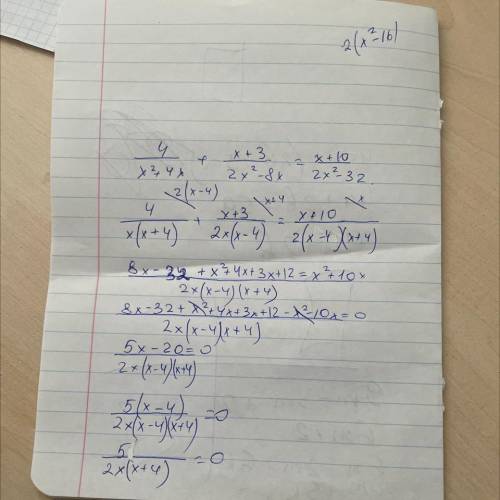 2(x²-16)
4/(x²+4x) + (x+3)/(2x²-8x) = (x+10)/(2x²-32).
4/(x(x+4)) \2(x-4) + (x+3)/(2x(x-4)) \x+4 = (x+10)/(2(x-4)(x+4)) \x
(8x-32+x²+4x+3x+12=x²+10x)/(2x(x-4)(x+4))
(8x-32+x²+4x+3x+12-x²-10x=0)/(2x(x-4)(x+4))
(5x-20=0)/(2x(x-4)(x+4))
5(x-4)/(2x(x-4)(x+4))=0
5/(2x(x+4))=0